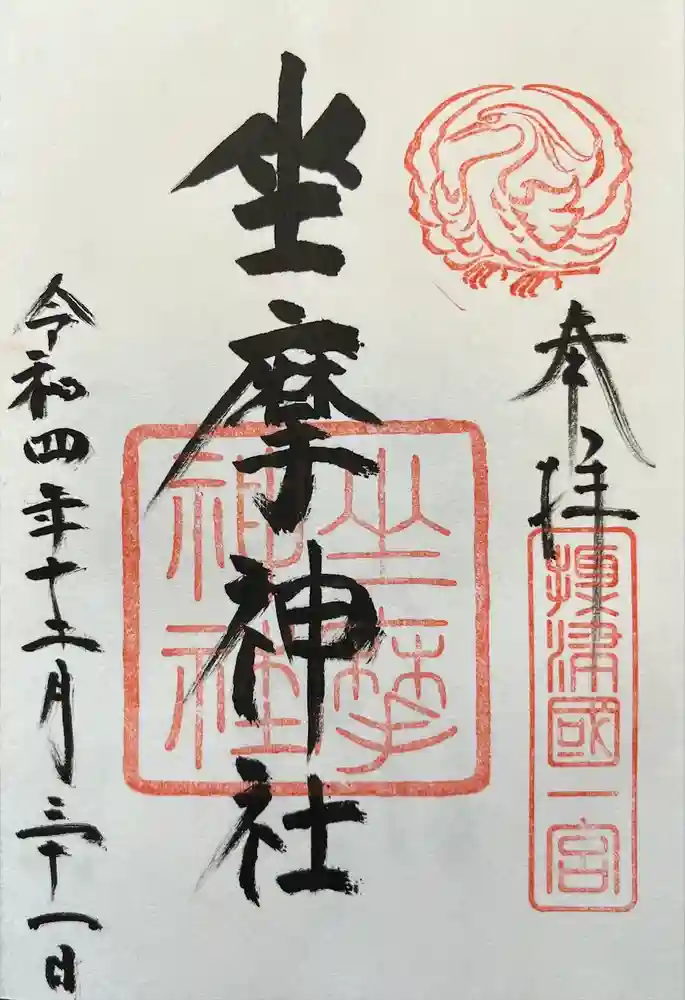 奉拝
攝津國一宮
坐摩神社
坐摩神社
令和四年十二月三十一日